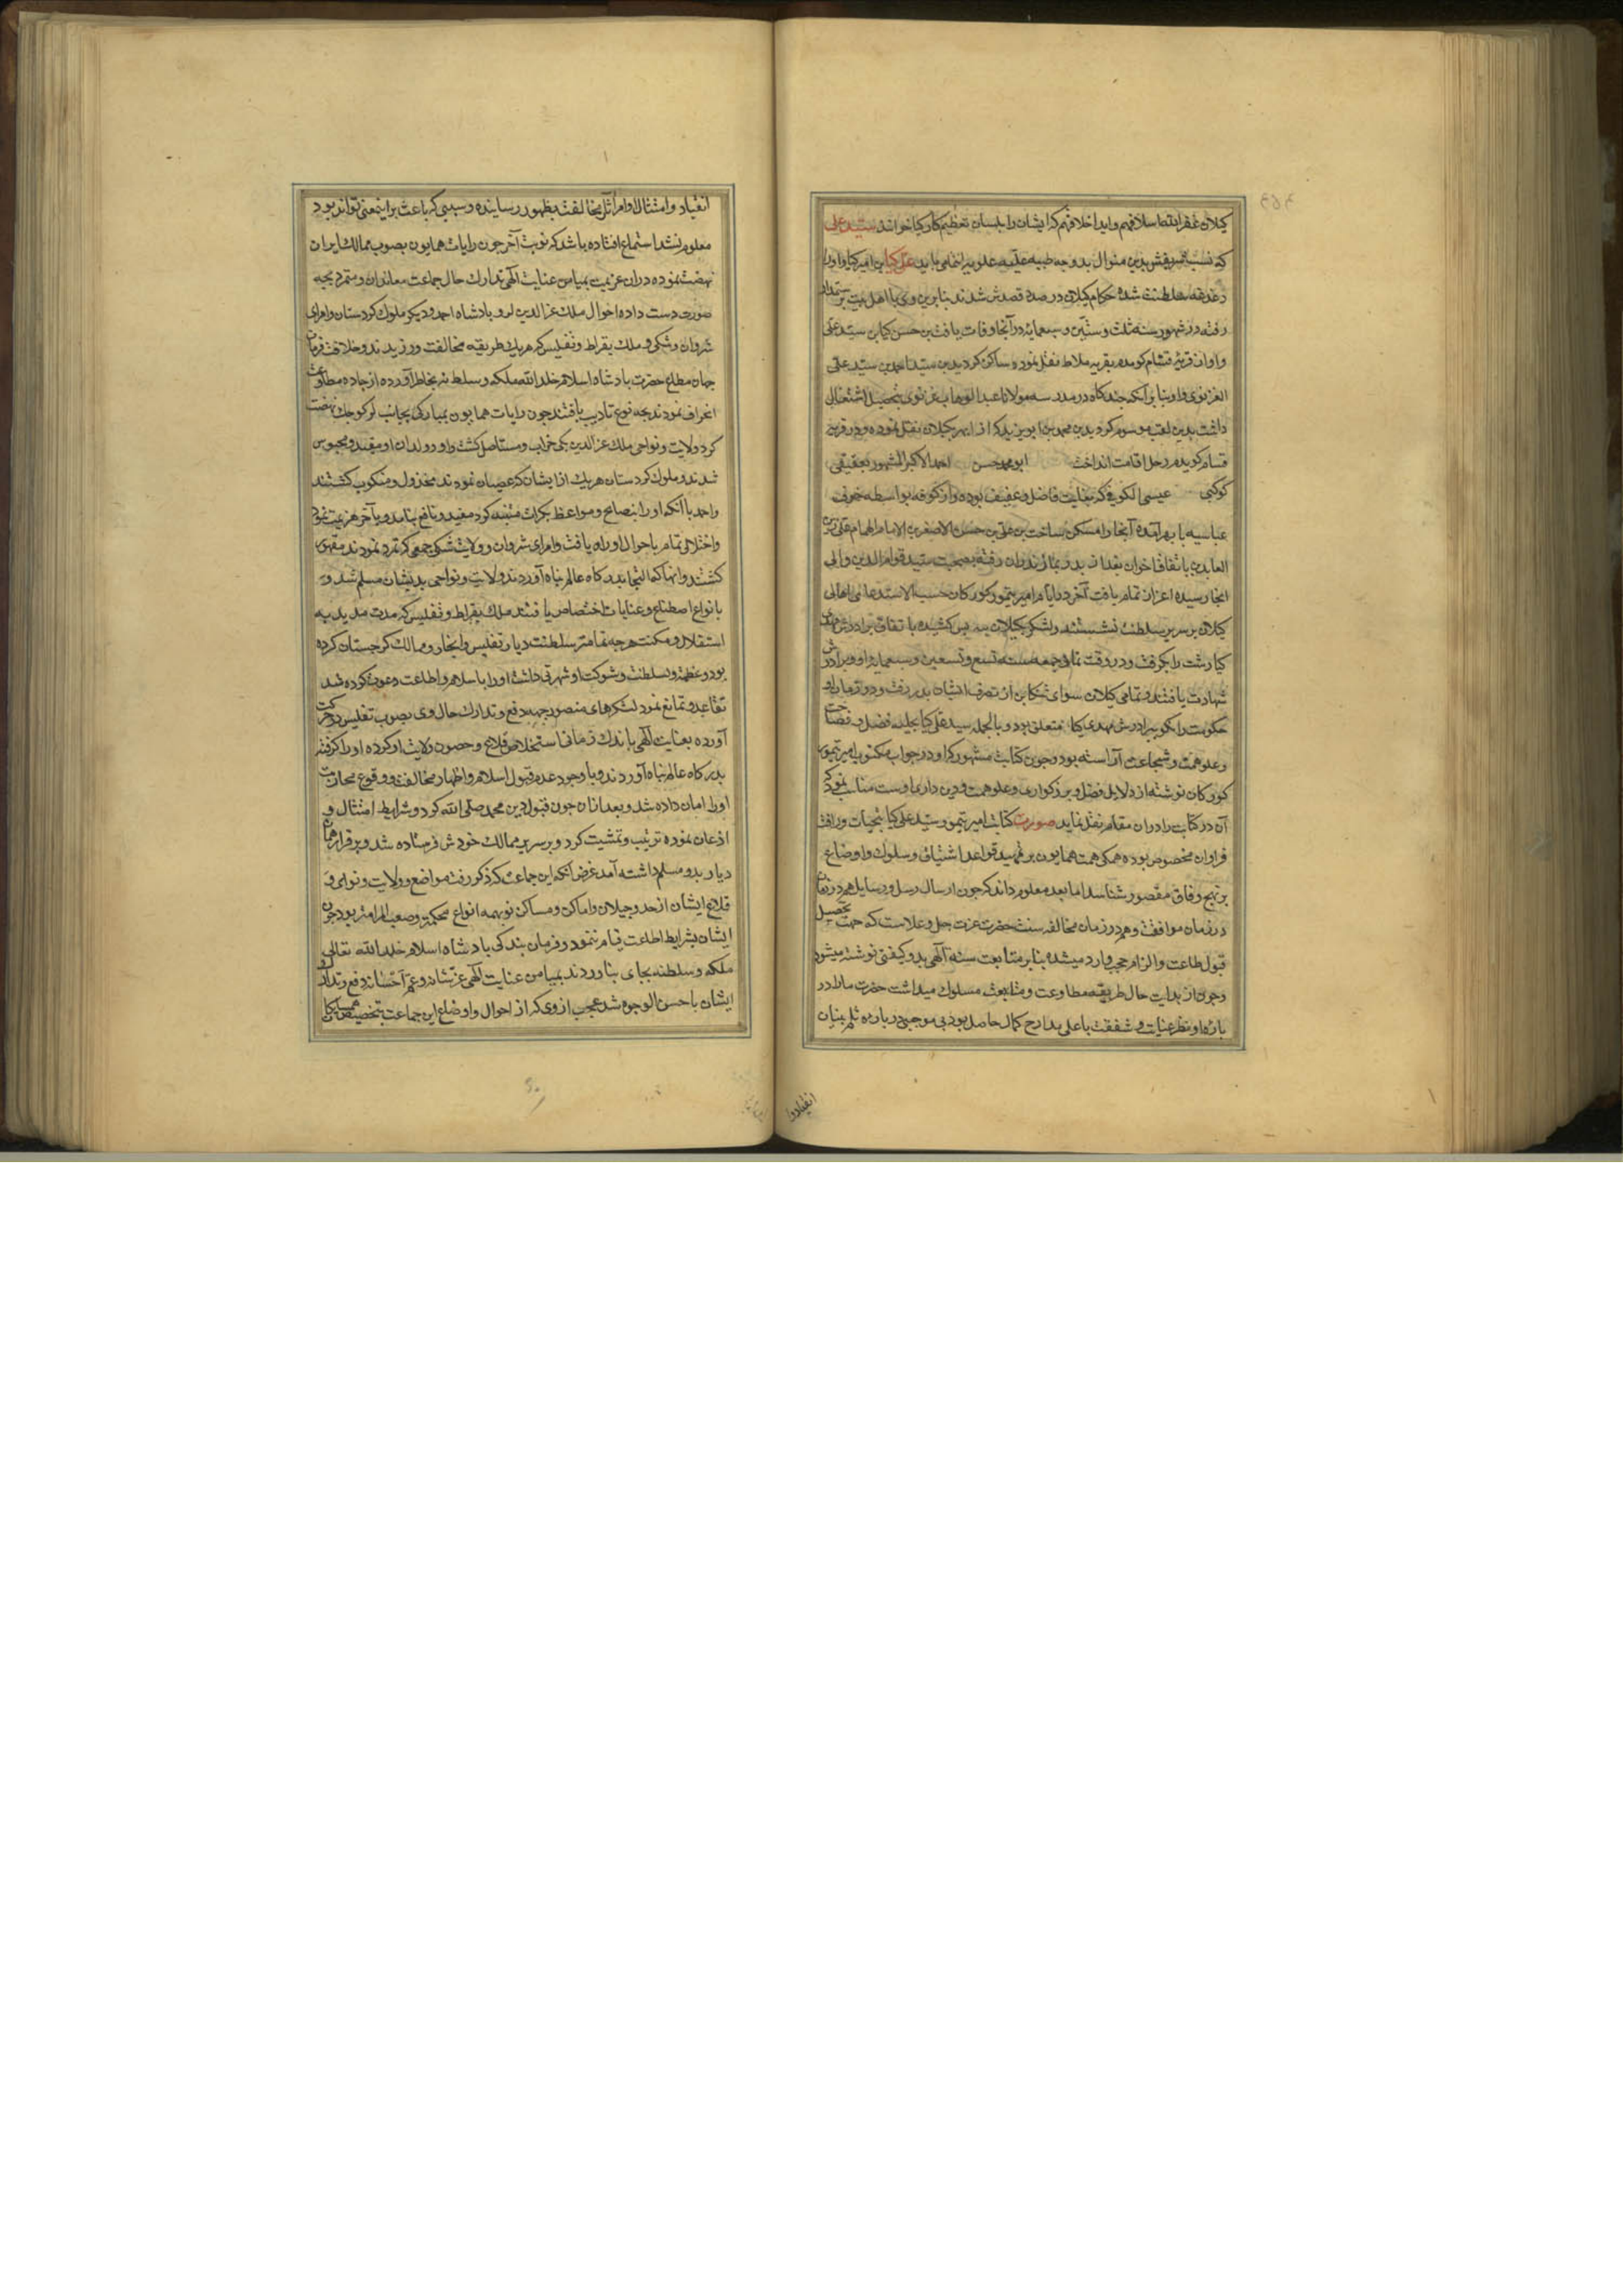 کیلان غفر الله اسلافهم و اید اخلافهم که ایشان را بلسان تعظیم کارکیا خوانند سید علی
که نسب شریفش بدین منوال بدوحه طیبه علیه علویه انتمامی یابد علی کیا بن امیر کیا و او را
دغدغه سلطنت شده حکام کیلان در صدد قصدش شدند بنابرین وی با اهل بیت برستمدار
رفته در شهور سنه ثلث و ستین و سبعمایه در آنجا وفات یافت بن حسن کیا بن سید علی
و او از قریه فشام کومده بقریه ملاط نقل نموده ساکن کردید بن سید احمد بن سید علی
الغزنوی و او بنابر آنکه چندکاه در مدرسه مولانا عبدالوهاب غزنوی بتحصیل اشتغال
داشت بدین لقب موسوم کردید بن محمد بن ابو یزید که از ابهر بکیلان نقل نموده و در قریه
فشام کویدم رحل اقامت انداخت ابو محمد حسن احمد الاکبر المشهور بعقیقی
کوکبی عیسی الکوفی که بغایت فاضل و عفیف بوده و از کوفه بواسطه خوف
عباسیه بابهر آمده آنجا را مسکن ساخت بن علی بن حسن الاصغر بن الامام الهمام علی زین
العابدین باتفاق اخوان بعد از پدر بمازندران رفته بصحبت سید قوام الدین والی
آنجا رسیده اعزاز تمام یافت آخر در ایام امیر تیمور کورکان حسب الاستدعای اهالی
کیلان بر سریر سلطنت نشستند و لشکر بکیلان بیه پس کشیده باتفاق برادرش مهدی
کیا رشت را بکرفت و در وقت نماز جمعه سنه تسع و تسعین و سبعمایه او و برادرش
شهادت یافتند و تمامی کیلان سوای تنکابن از تصرف ایشان بدر رفت و در زمان او
حکومت رانکو ببرادرش مهدی کیا متعلق بود و بالجمله سید علی کیا بحلیه فضل و فصاحت
و علو همت و شجاعت آراسته بود و چون کتابت مشهور که او در جواب مکتوب امیر تیمور
کورکان نوشته از دلایل فضل و بزرکواری و علو همت و دین داری اوست مناسب نمود که
آن در کتابت را در این مقام نقل نماید صورت کتابت امیر تیمور سید علی کیا بتحیات و رافت
فراوان مخصوص بوده همکی همت همایون بر تمهید قواعد اشتیاق و سلوک و اوضاع
بر نهج وفاق مقصور شناسد اما بعد معلوم داند که چون ارسال رسل و رسایل هم در زمان
در زمان موافقت و هم در زمان مخالفه سنت حضرت عزت جل و علاست که جهت تحصیل
قبول طاعت و الزام حجب وارد میشده بنابر متابعت سنه الهی بدو کیفتی نوشته میشود
و چون از بدایت حال طریقه مطاوعت و متابعت مسلوک میداشت حضرت ما را در
باره او نظر عنایت و شفقت باعلی مدارج کمال حاصل بود بی موجبی در باره ثلم بنیان
انقیاد و ا
انقیاد و امتثال اوامر اثار مخالفت بظهور رسانیده و سببی که باعث بر اینمعنی تواند بود
معلوم نشد استماع افتاده باشد که نوبت آخر چون رایات همایون بصوب ممالک ایران
نهضت نموده در ان عزیمت بمیامن عنایت الهی تدارک حال جماعت معاندان و متمرد بچه
صورت دست داده احوال ملک عزالدین لر و بادشاه احمد و دیکر ملوک کردستان و امرای
شروان و شکی و ملک بقراط و تفلیس که هر یک طریقه مخالفت ورزیدند و خلاف فرمان
جهان مطاع حضرت بادشاه اسلام خلد الله ملکه و سلطنه بخاطر آورده از جاده مطاوعت
انحراف نمودند بچه نوع تادیب یافتند چون رایات همایون بمبارکی بجانب لر کوچک نهضت
کرد ولایت و نواحی ملک عزالدین بکی خراب و مستاصل کشت و او و ولدان او مقید و محبوس
شدند و ملوک کردستان هر یک از ایشان که عصیان نمودند مخذول و منکوب کشتند
و احمد با آنکه او را بنصایح و مواعظ بکرات متنبه کرد مفید و نافع نیامد و بآخر هزیمت نمود
و اختلالی تمام باحوال او راه یافت و امرای شروان و ولایت شکی جمعی که تمرد نمودند مقهور
کشتند و انها که التجا بدرکاه عالم پناه آوردند ولایت و نواحی بدیشان مسلم شد و
بانواع اصطناع و عنایات اختصاص یافتند ملک بقراط و تفلیس که مدت مدید به
استقلال و مکنت هرچه تمامتر سلطنت دیار تفلیس و ابخاز و ممالک کرجستان کرده
بود و عظمت و سلطنت و شوکت او شهرتی داشت او را باسلام و اطاعت دعوت کرده شد
تقاعد و تمانع نمود لشکرهای منصور بجهه دفع و تدارک حال وی بصوب تفلیس در حرکت
آورده بعنایت الهی باندک زمانی استخلاص قلاع و حصون ولایت او کرده او را کرفته
بدرکاه عالم پناه آوردند و با وجود عدم قبول اسلام و اظهار مخالفت و وقوع محاربت
او را امان داده شد و بعد از ان چون قبول دین محمد صلی الله کرد و شرایط امتثال و
اذعان نموده ترتیب و تمشیت کرد و بر سریر ممالک خودش فرستاده شد و برقرار همان
دیار بدو مسلم داشته آمد غرض آنکه این جماعت که ذکر رفت مواضع و ولایت و نواحی و
قلاع ایشان از حد و جیلان و اماکن و مساکن تو بهمه انواع محکمتر و صعب المرامتر بود چون
ایشان بشرایط اطاعت قیام ننمود و فرمان بندکی بادشاه اسلام خلد الله تعالی
ملکه و سلطنه بجای نیاوردند بمیامن عنایت الهی عز شانه و عم احسانه دفع و تدارک
ایشان باحسن الوجوه شد عجب از وی که از احوال و اوضاع این جماعت بتخصیص